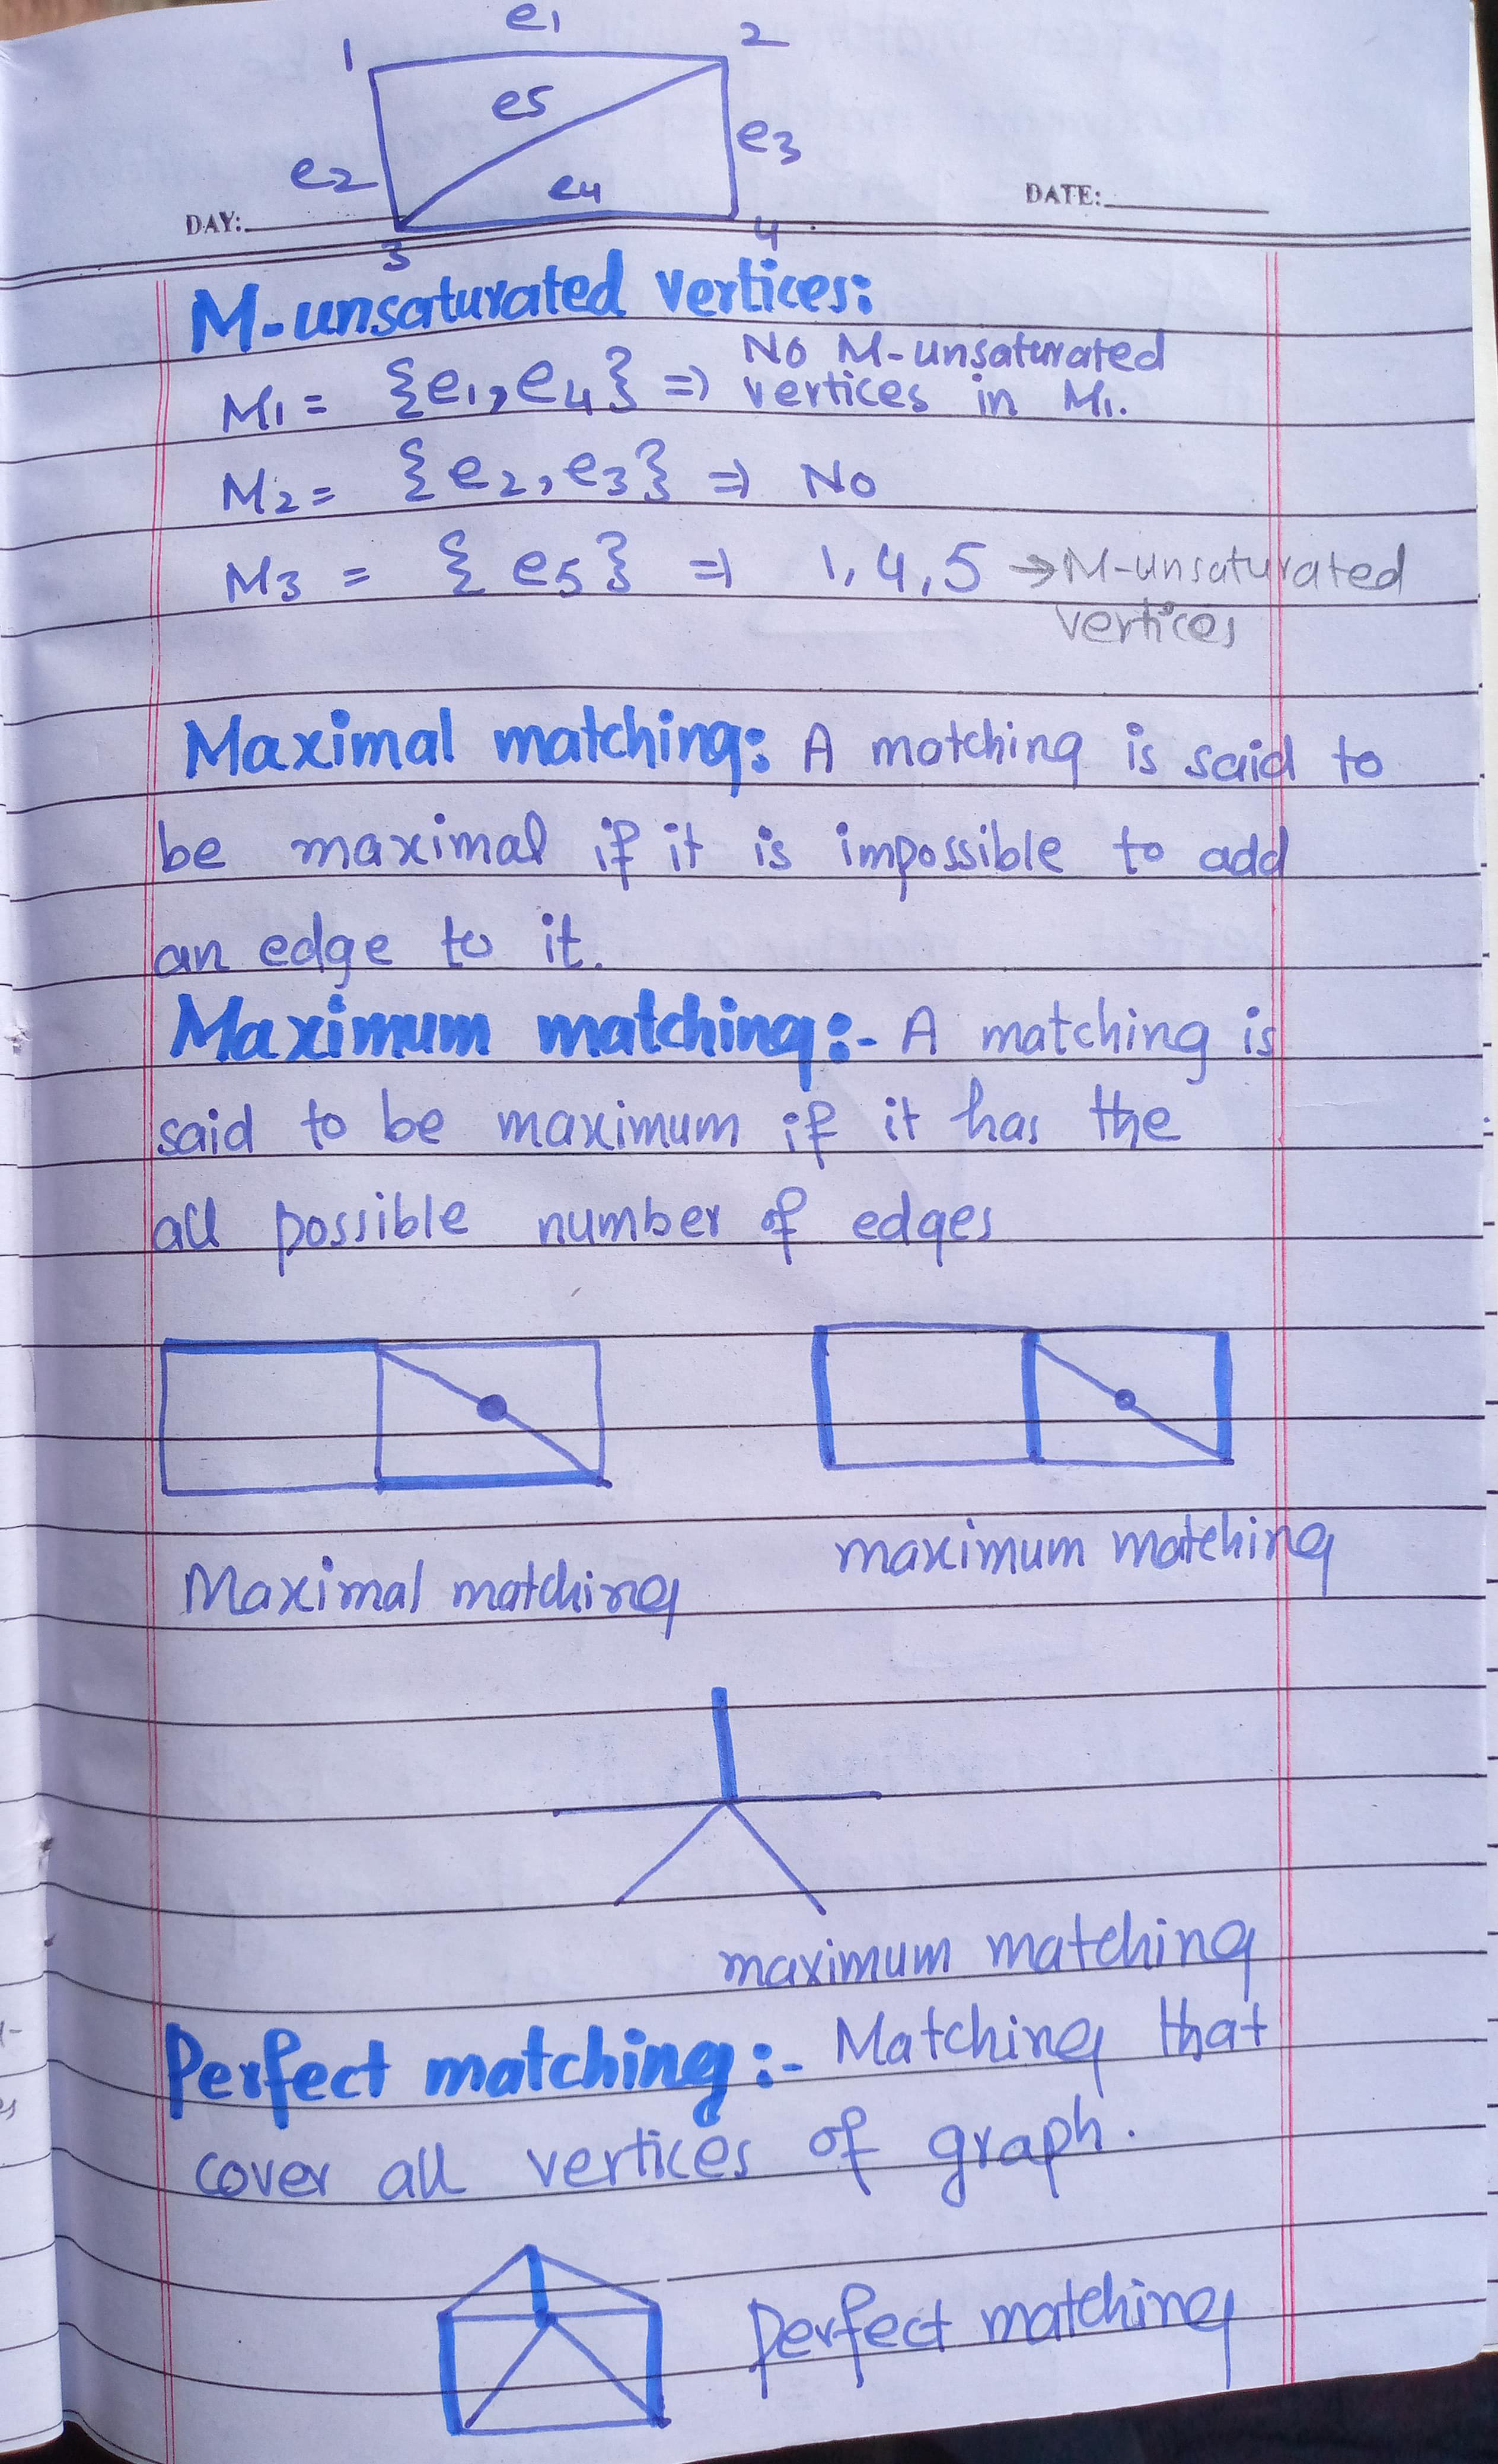 e1
1 2
e5
e3
e2
e4
DAY: DATE:
3 4
M-unsaturated vertices:
M1 = {e1, e4} => No M-unsaturated
vertices in M1.
M2 = {e2, e3} => No
M3 = {e5} => 1, 4, 5 → M-unsaturated
vertices
Maximal matching: A matching is said to
be maximal if it is impossible to add
an edge to it.
Maximum matching:- A matching is
said to be maximum if it has the
all possible number of edges
Maximal matching
maximum matching
maximum matching
Perfect matching:- Matching that
cover all vertices of graph.
Perfect matching